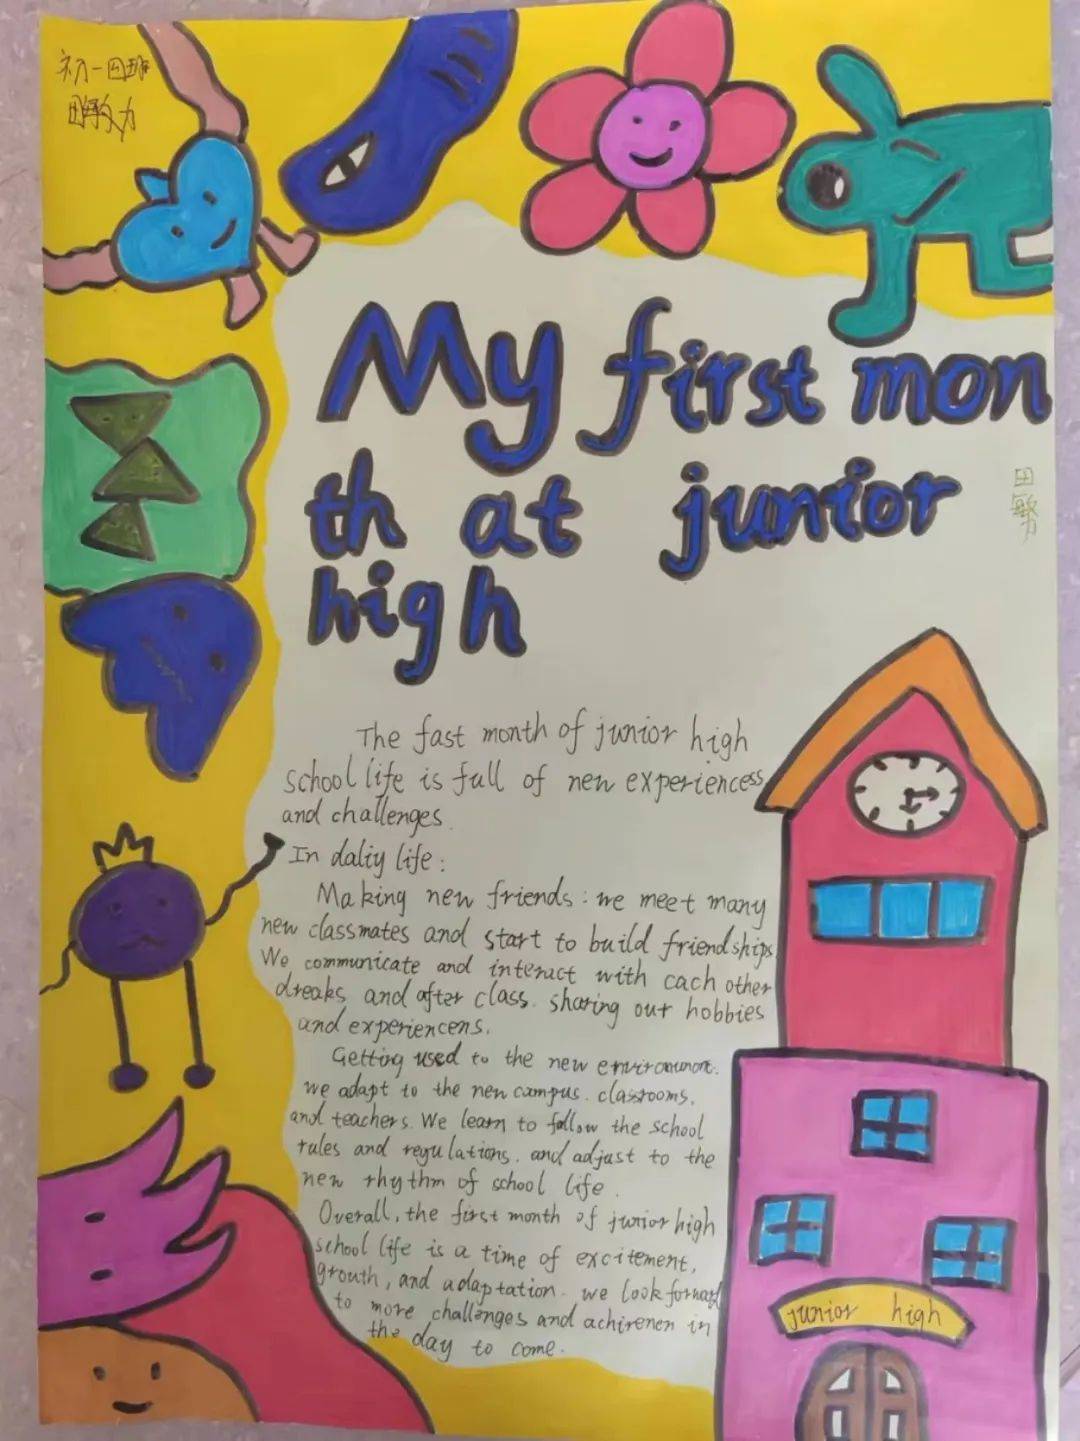 初一四班
田敏力
My first mon
th at junior
high
田敏力
The fast month of junior high
school life is full of new experiences
and challenges.
In daliy life:
Making new friends: we meet many
new classmates and start to build friendships
We communicate and interact with cach other
dreaks and after class. sharing our hobbies
and experiencens.
Getting used to the new environment.
we adapt to the new campus. classrooms.
and teachers. We learn to follow the school
rules and regulations. and adjust to the
new rhythm of school life.
Overall, the first month of junior high
school life is a time of excitement,
grouth, and adaptation. we look forward
to more challenges and achirenen in
the day to come.
junior high